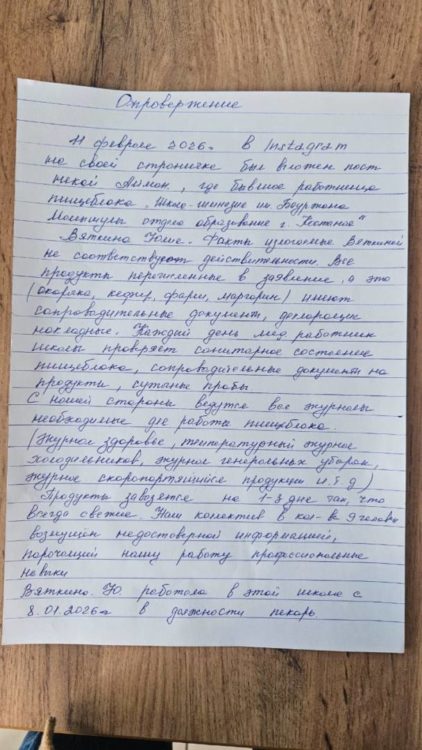 Опровержение
11 февраля 2026г. В Instagram
на своей страничке был вложен пост
некой Алмок, где бывшая работница
пищеблока, школе-гимназие им Бауржана
Момышулы отдела образование г. Костаная"
Вяткина Юлие. Факты изложенные Вяткиной
не соответствуют действительности. Все
продукты перечисленные в заявление, а это
(окорока, кефир, фарш, маргарин) имеют
сопроводительные документы, декларации
накладные. Каждый день мед работник
школы проверяет санитарное состояние
пищеблока, сопроводительные документы на
продукты, сутаные пробы
С нашей стороны ведутся все журналы
необходимые для работы пищеблока.
(Журнал здоровье, температурный журнал
холодильников, журнал генеральных уборок,
журнал скоропортяшейся продукции и. т д)
Продукты завозятся на 1-3 дня так, что
всегда свежие. Наш колектив в кол-ве 9 человек
возмущен недостоверной информацией,
порочащий нашу работу профессиональные
навыки
Вяткина. Ю. работала в этой школе с
8.01.2026г в должности пекарь.